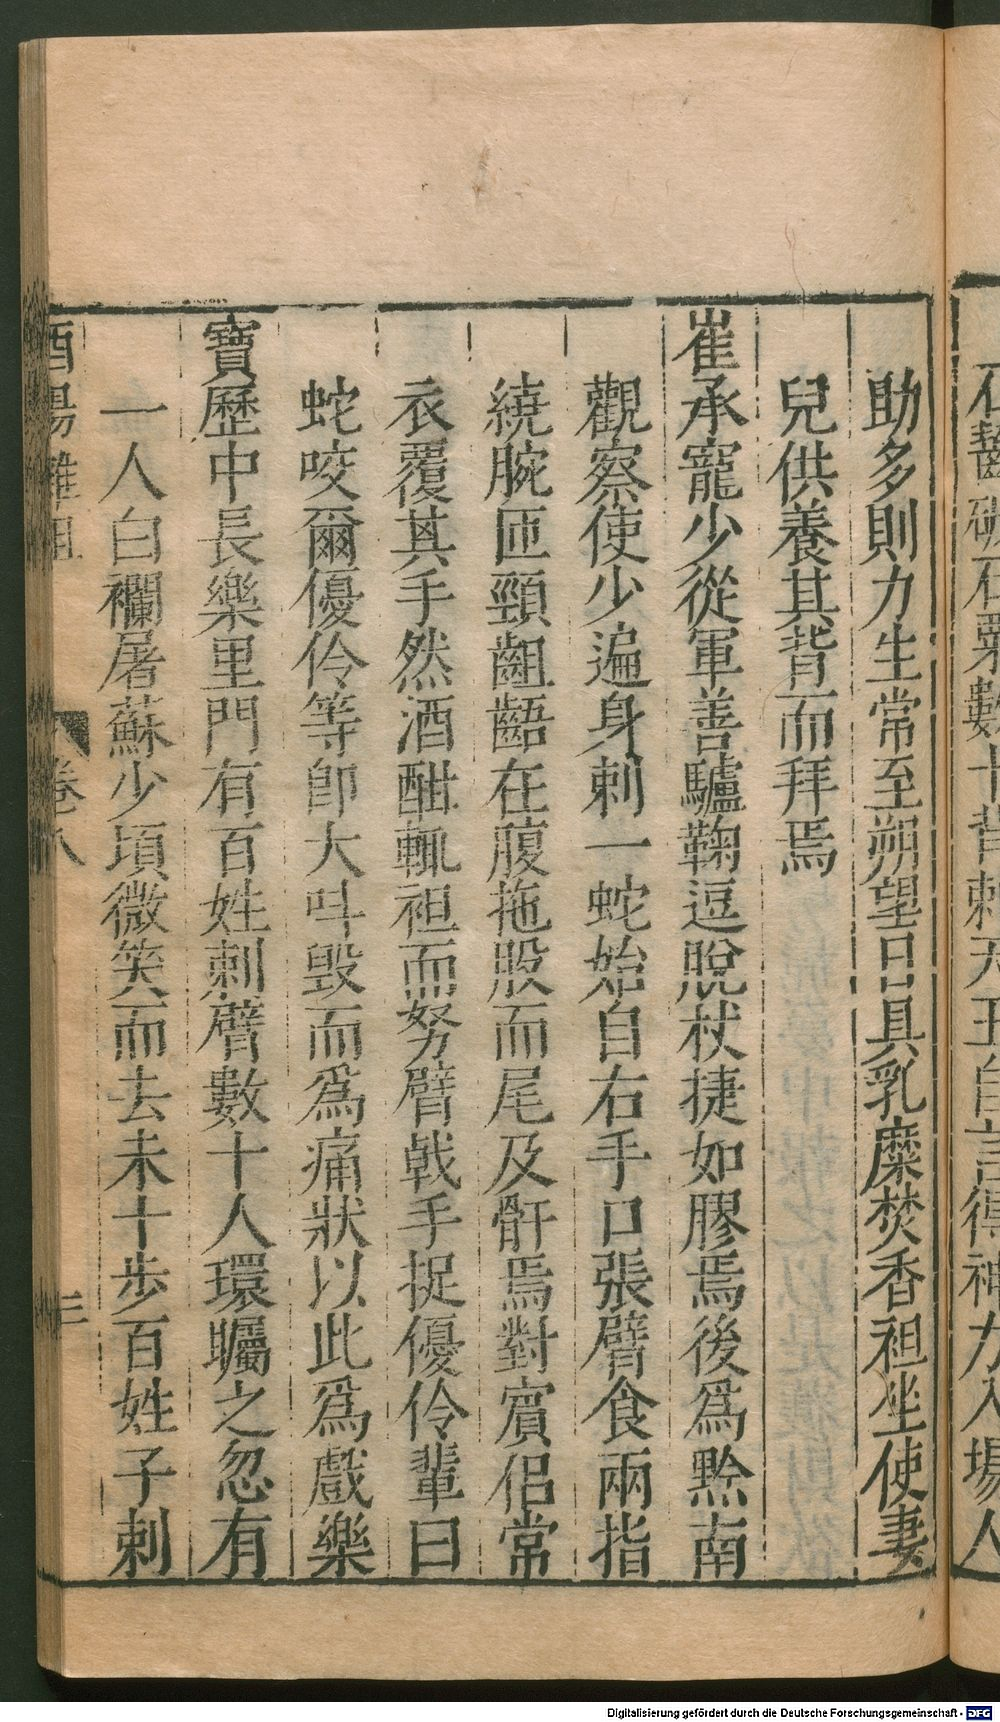 石齧破石粟數十背刺天王自言得神力入場人
助多則力生常至朔望日具乳糜焚香袒坐使妻
兒供養其背而拜焉
崔承寵少從軍善驢鞠逗脫杖捷如膠焉後為黔南
觀察使少遍身刺一蛇始自右手口張臂食兩指
繞腕匝頸齟齬在腹拖股而尾及骭焉對賓侶常
衣覆其手然酒酣輒袒而努臂戟手捉優伶輩曰
蛇咬爾優伶等卽大呌毀而爲痛狀以此爲戲樂
寶歷中長樂里門有百姓刺臂數十人環矚之忽有
一人白襴屠蘇少頃微笑而去未十步百姓子刺
酉陽雜俎 卷八 三
Digitalisierung gefördert durch die Deutsche Forschungsgemeinschaft - DFG